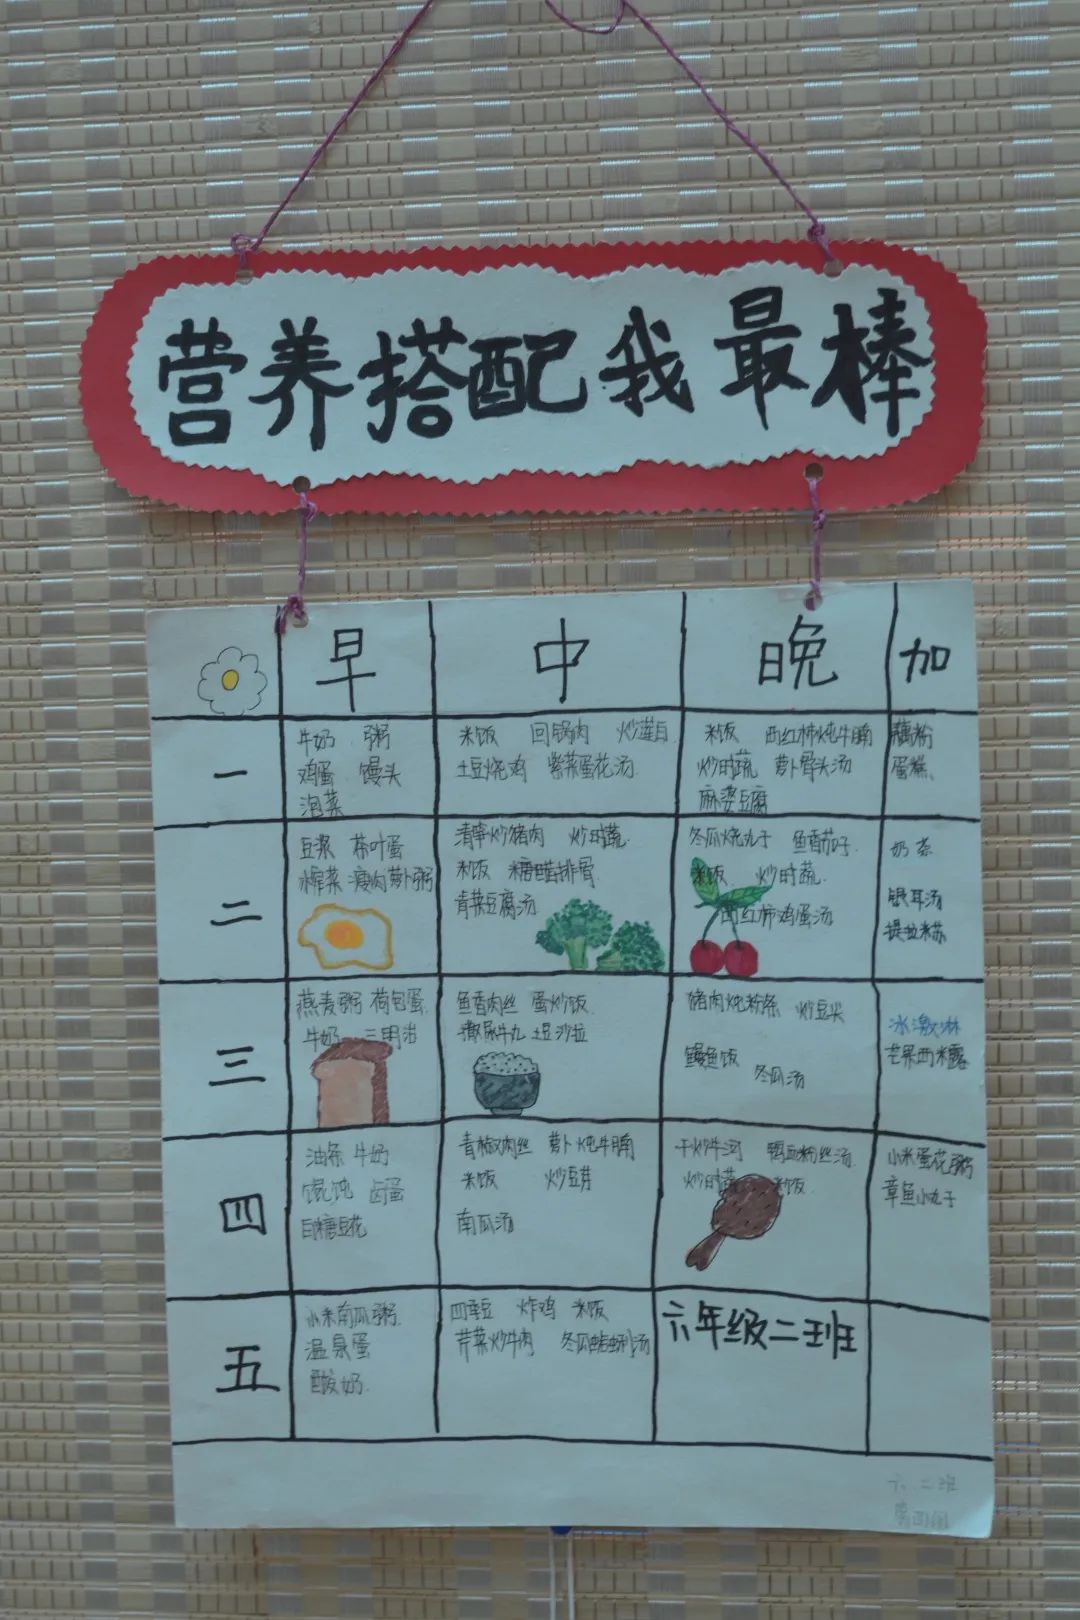 营养搭配我最棒
早 中 晚 加
一
牛奶 粥
鸡蛋 馒头
泡菜
米饭 回锅肉 炒莲白
土豆烧鸡 紫菜蛋花汤
米饭 西红柿炖牛腩
炒时蔬 萝卜骨头汤
麻婆豆腐
藕粉
蛋糕
二
豆浆 茶叶蛋
榨菜 瘦肉萝卜粥
清笋炒猪肉 炒时蔬
米饭 糖醋排骨
青菜豆腐汤
冬瓜烧丸子 鱼香茄子
米饭 炒时蔬
西红柿鸡蛋汤
奶茶
银耳汤
提拉米苏
三
燕麦粥 荷包蛋
牛奶 三明治
鱼香肉丝 蛋炒饭
撒尿牛丸 土豆沙拉
猪肉炖粉条 炒豆尖
鳗鱼饭 冬瓜汤
冰激淋
芒果西米露
四
油条 牛奶
馄饨 卤蛋
白糖豆花
青椒肉丝 萝卜炖牛腩
米饭 炒豆芽
南瓜汤
干炒牛河 鸭血粉丝汤
炒时蔬 米饭
小米蛋花粥
章鱼小丸子
五
小米南瓜粥
温泉蛋
酸奶
四季豆 炸鸡 米饭
芹菜炒牛肉 冬瓜蛤蜊汤
六年级二班
六.二班